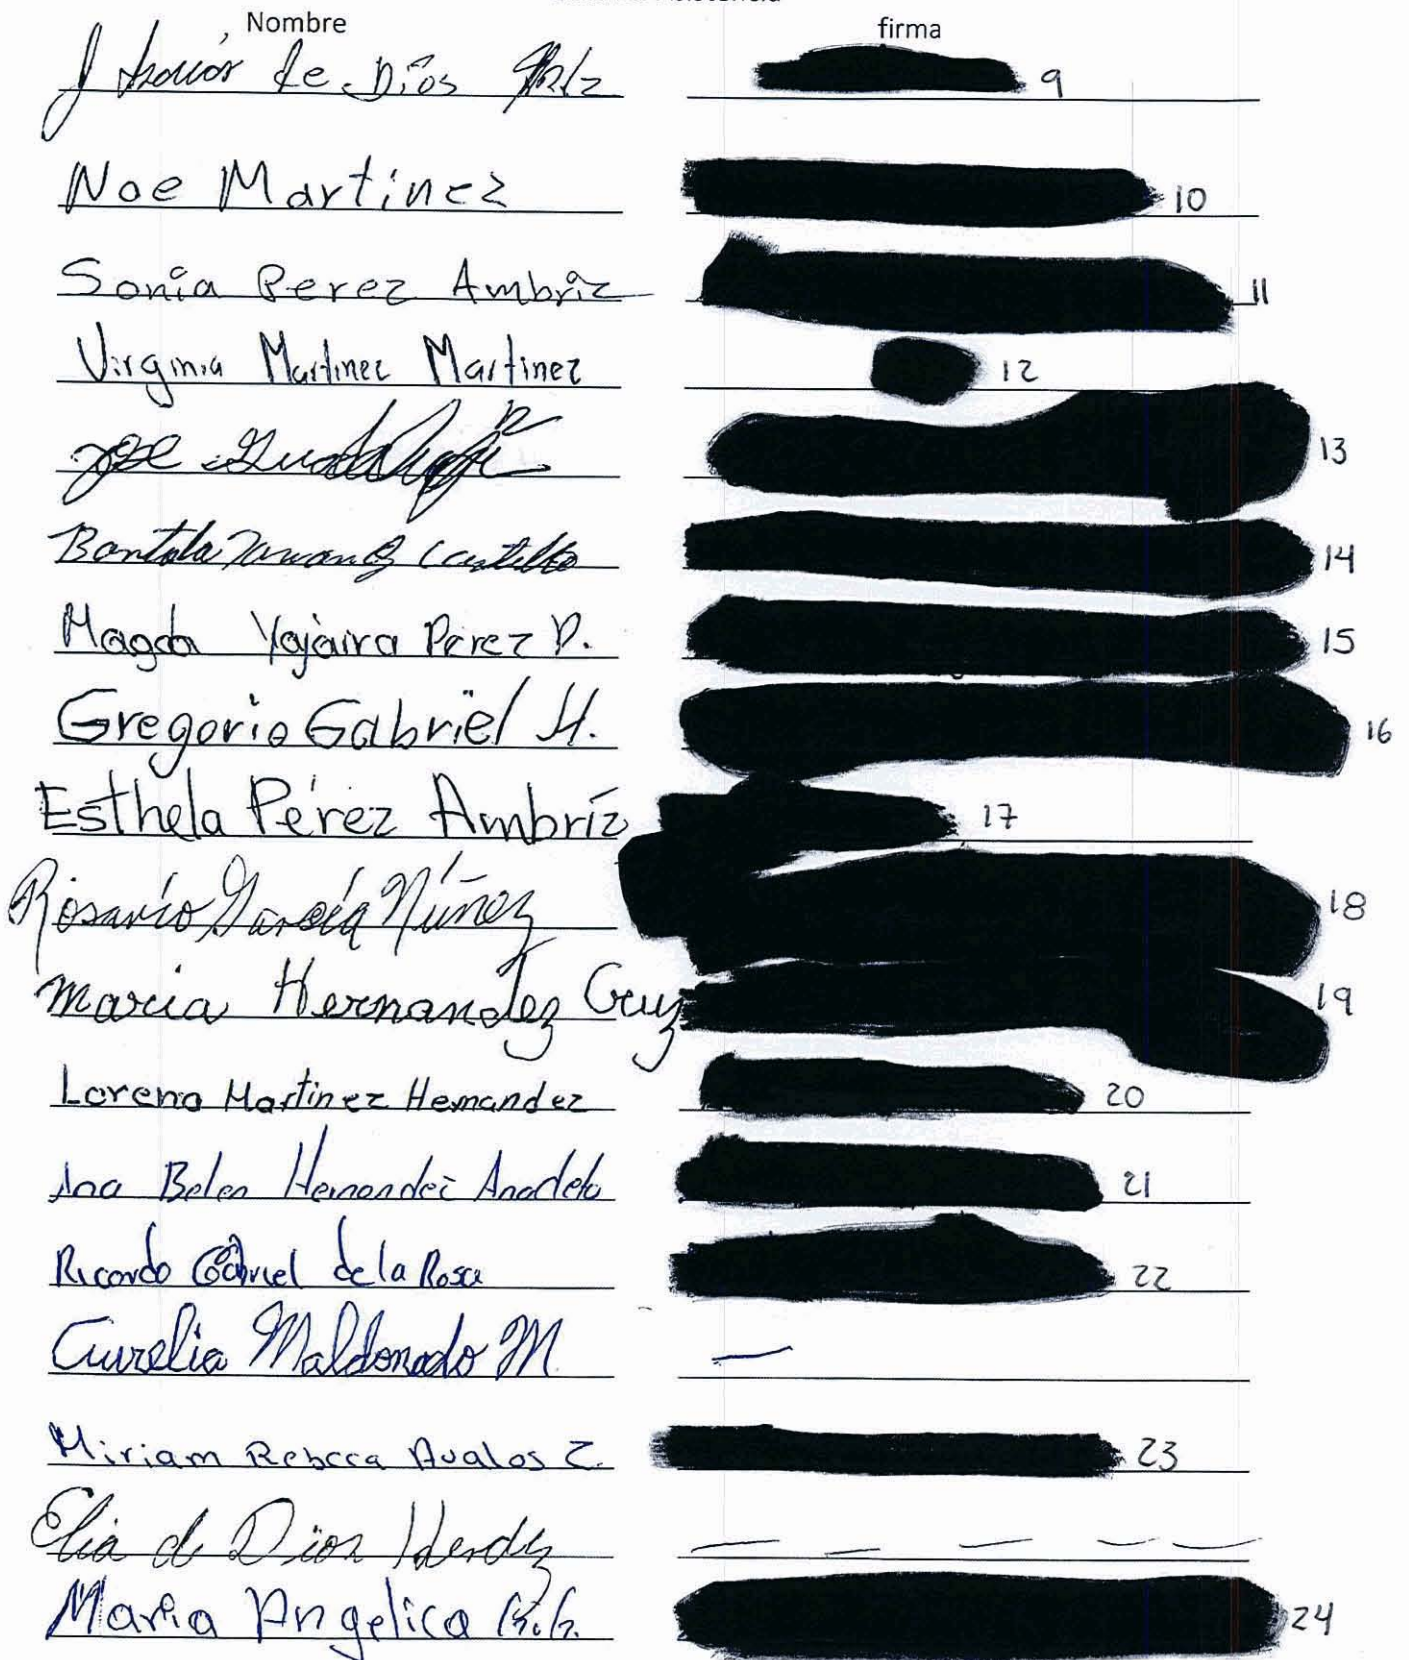 Nombre firma
J de Dios 9
Noe Martinez 10
Sonia Perez Ambriz 11
Virginia Martinez Martinez 12
Jose Guadalupe 13
Castillo 14
Magda Yajaira Pérez P. 15
Gregorio Gabriel H. 16
Esthela Pérez Ambríz 17
Rosario García Núñez 18
Maria Hernandez Cruz 19
Lorena Martinez Hernandez 20
Ana Belen Hernandez 21
Ricardo Gabriel de la Rosa 22
Aurelia Maldonado M
Miriam Rebeca Avalos Z. 23
Elia d Dios Herdz
Maria Angelica 24